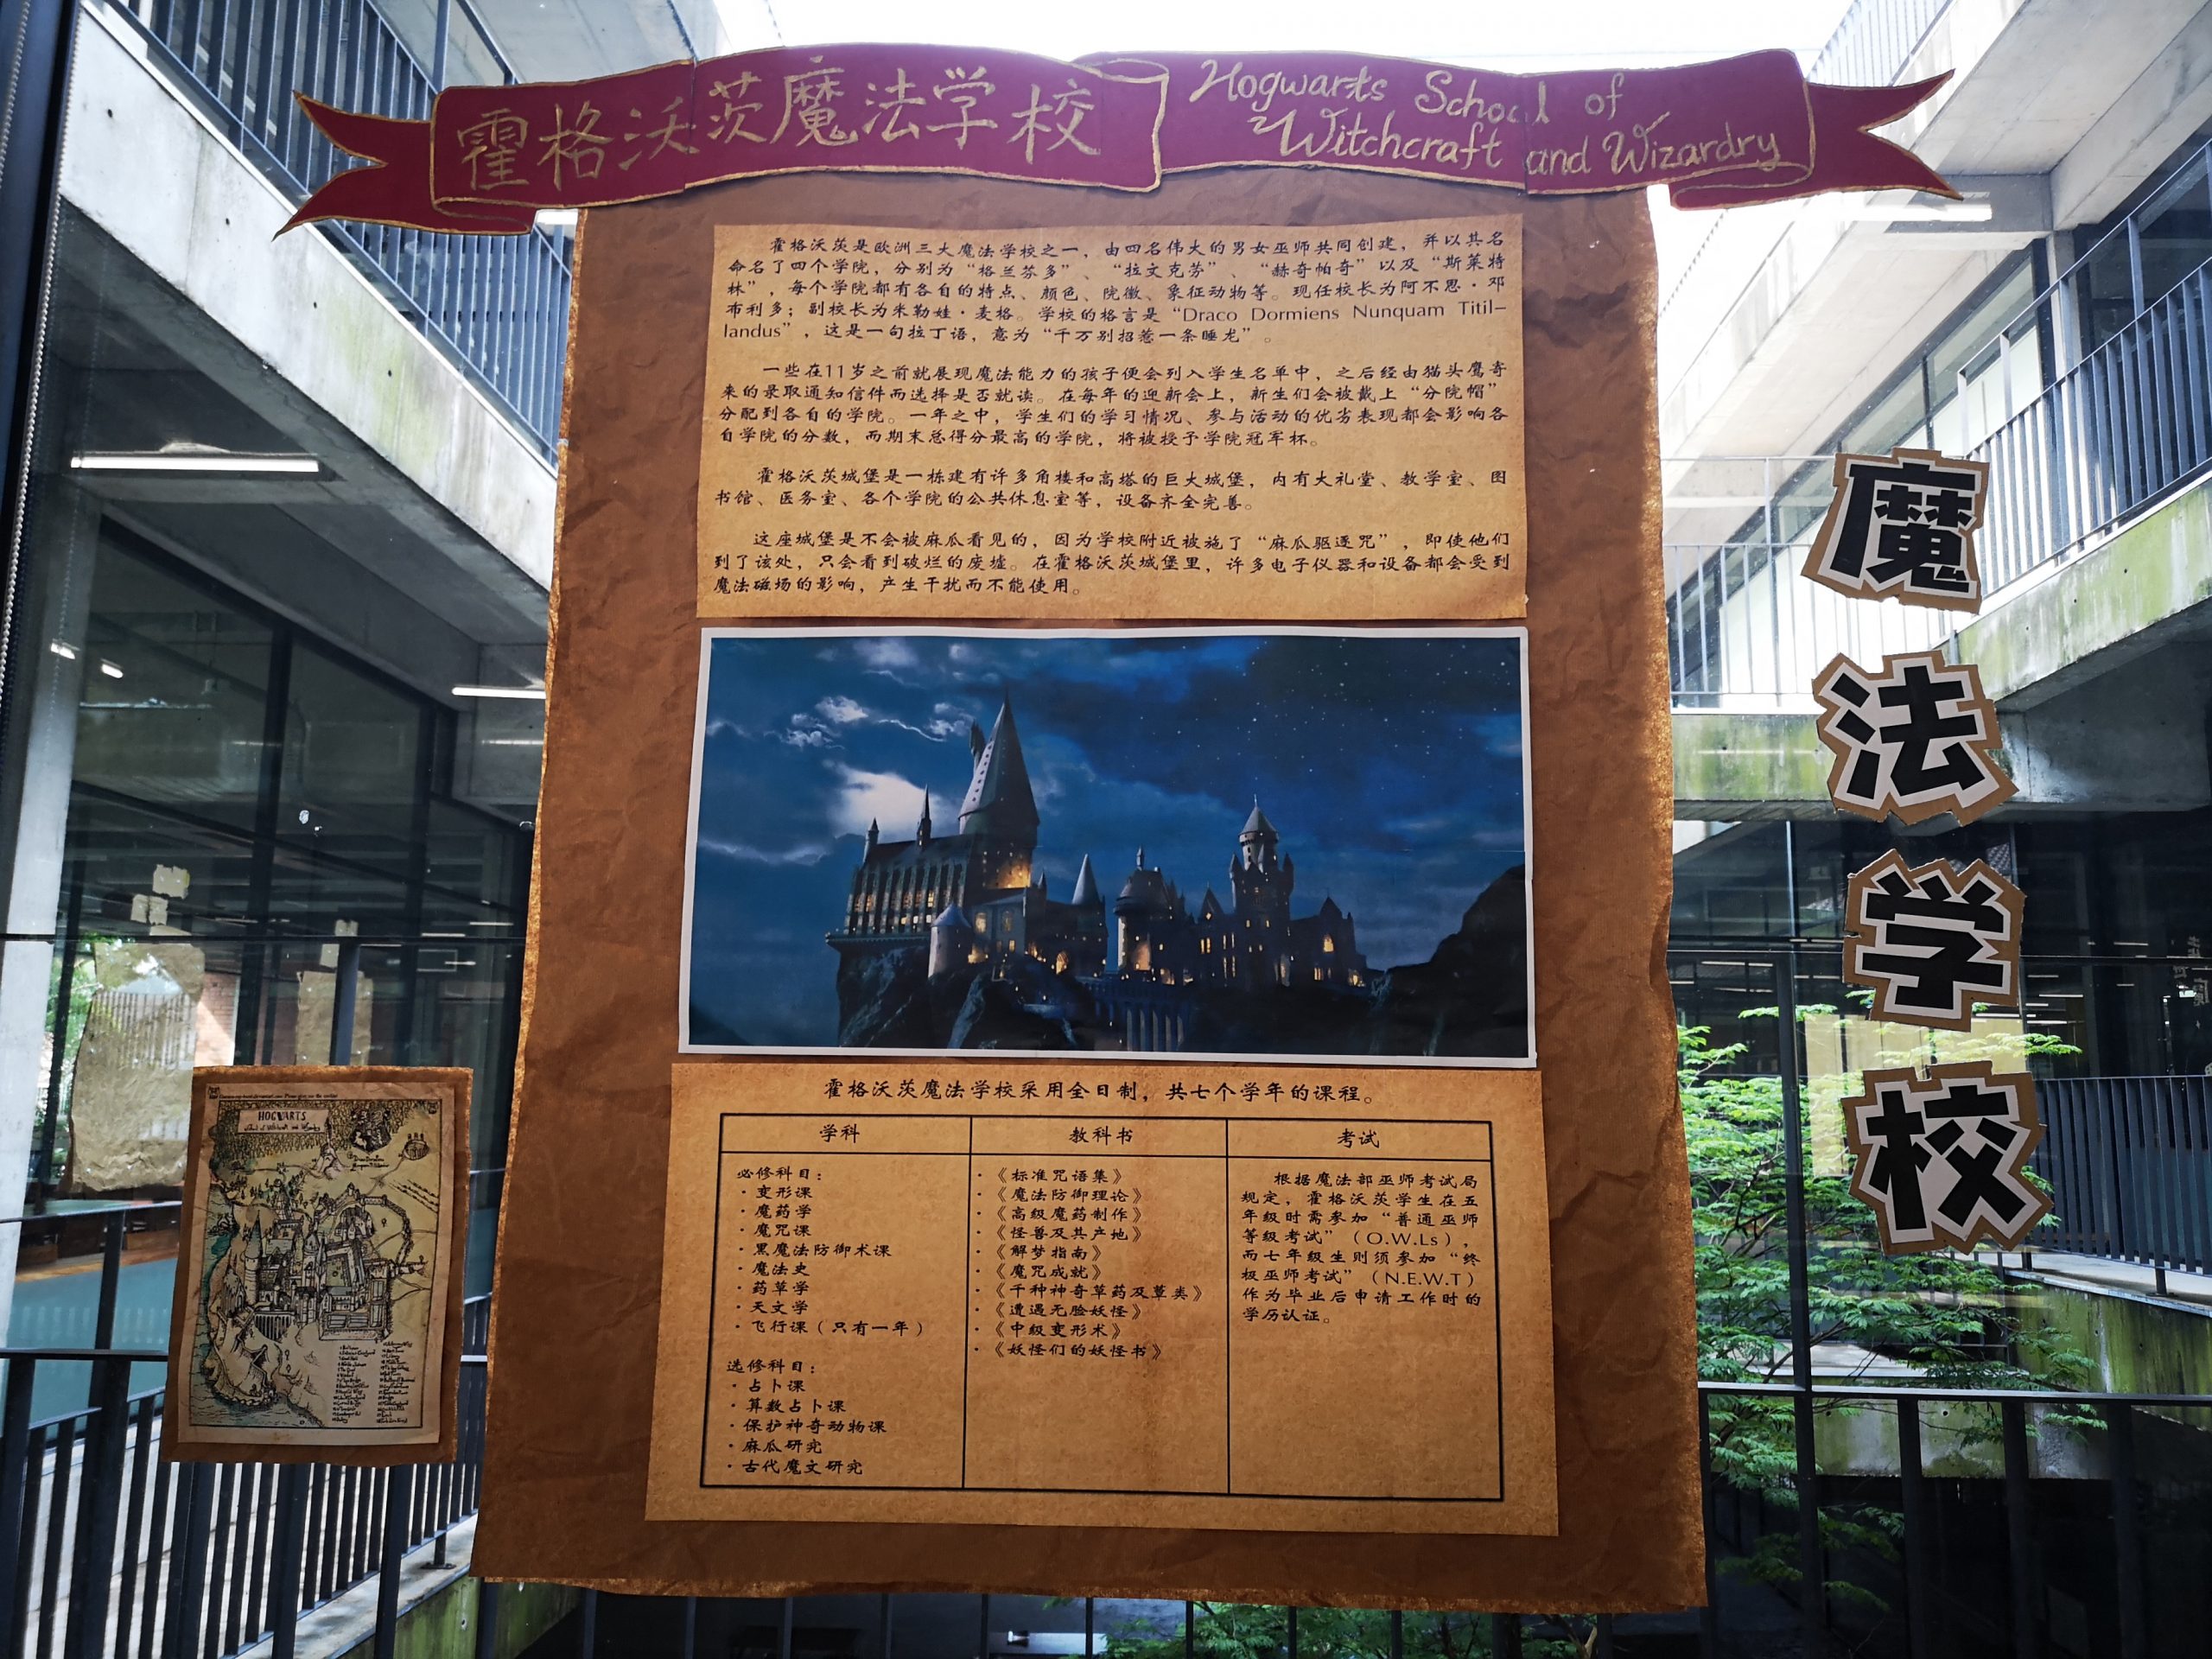 霍格沃茨魔法学校
Hogwarts School of
Witchcraft and Wizardry
霍格沃茨是欧洲三大魔法学校之一，由四名伟大的男女巫师共同创建，并以其名
命名了四个学院，分别为“格兰芬多”、“拉文克劳”、“赫奇帕奇”以及“斯莱特
林”，每个学院都有各自的特点、颜色、院徽、象征动物等。现任校长为阿不思·邓
布利多；副校长为米勒娃·麦格。学校的格言是“Draco Dormiens Nunquam Titil-
landus”，这是一句拉丁语，意为“千万别招惹一条睡龙”。
一些在11岁之前就展现魔法能力的孩子便会列入学生名单中，之后经由猫头鹰寄
来的录取通知信件而选择是否就读。在每年的迎新会上，新生们会被戴上“分院帽”
分配到各自的学院。一年之中，学生们的学习情况、参与活动的优劣表现都会影响各
自学院的分数，而期末总得分最高的学院，将被授予学院冠军杯。
霍格沃茨城堡是一栋建有许多角楼和高塔的巨大城堡，内有大礼堂、教学室、图
书馆、医务室、各个学院的公共休息室等，设备齐全完善。
这座城堡是不会被麻瓜看见的，因为学校附近被施了“麻瓜驱逐咒”，即使他们
到了该处，只会看到破烂的废墟。在霍格沃茨城堡里，许多电子仪器和设备都会受到
魔法磁场的影响，产生干扰而不能使用。
魔
法
学
校
霍格沃茨魔法学校采用全日制，共七个学年的课程。
学科
必修科目：
·变形课
·魔药学
·魔咒课
·黑魔法防御术课
·魔法史
·药草学
·天文学
·飞行课（只有一年）
选修科目：
·占卜课
·算数占卜课
·保护神奇动物课
·麻瓜研究
·古代魔文研究
教科书
·《标准咒语集》
·《魔法防御理论》
·《高级魔药制作》
·《怪兽及其产地》
·《解梦指南》
·《魔咒成就》
·《千种神奇草药及蕈类》
·《遭遇无脸妖怪》
·《中级变形术》
·《妖怪们的妖怪书》
考试
根据魔法部巫师考试局
规定，霍格沃茨学生在五
年级时需参加“普通巫师
等级考试”（O.W.Ls），
而七年级生则须参加“终
极巫师考试”（N.E.W.T）
作为毕业后申请工作时的
学历认证。
HOGWARTS
School of Witchcraft and Wizardry